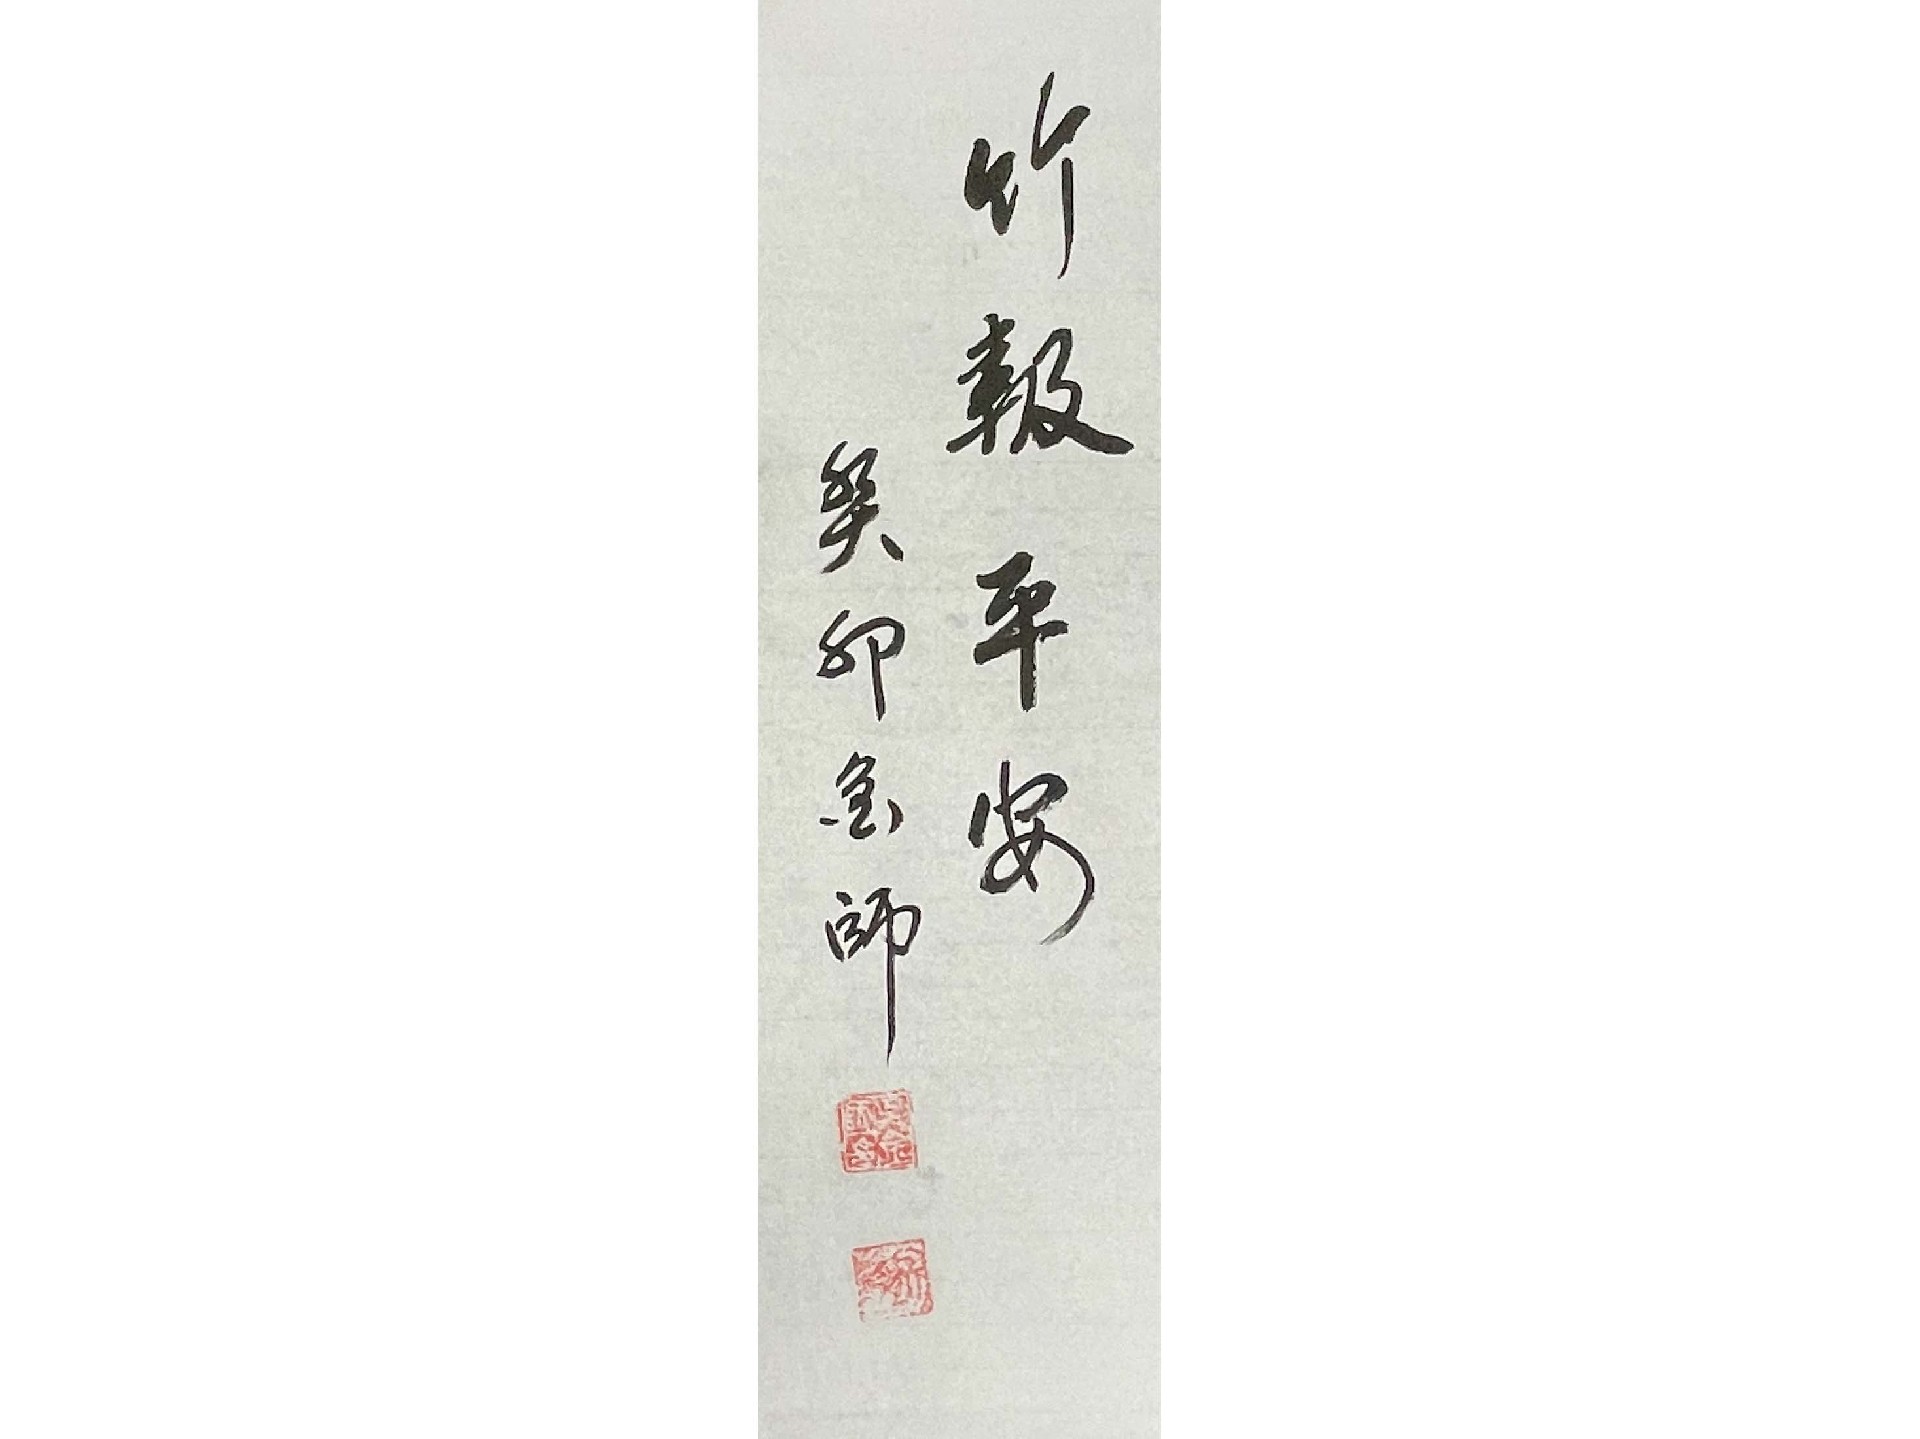 竹報平安
癸卯金師